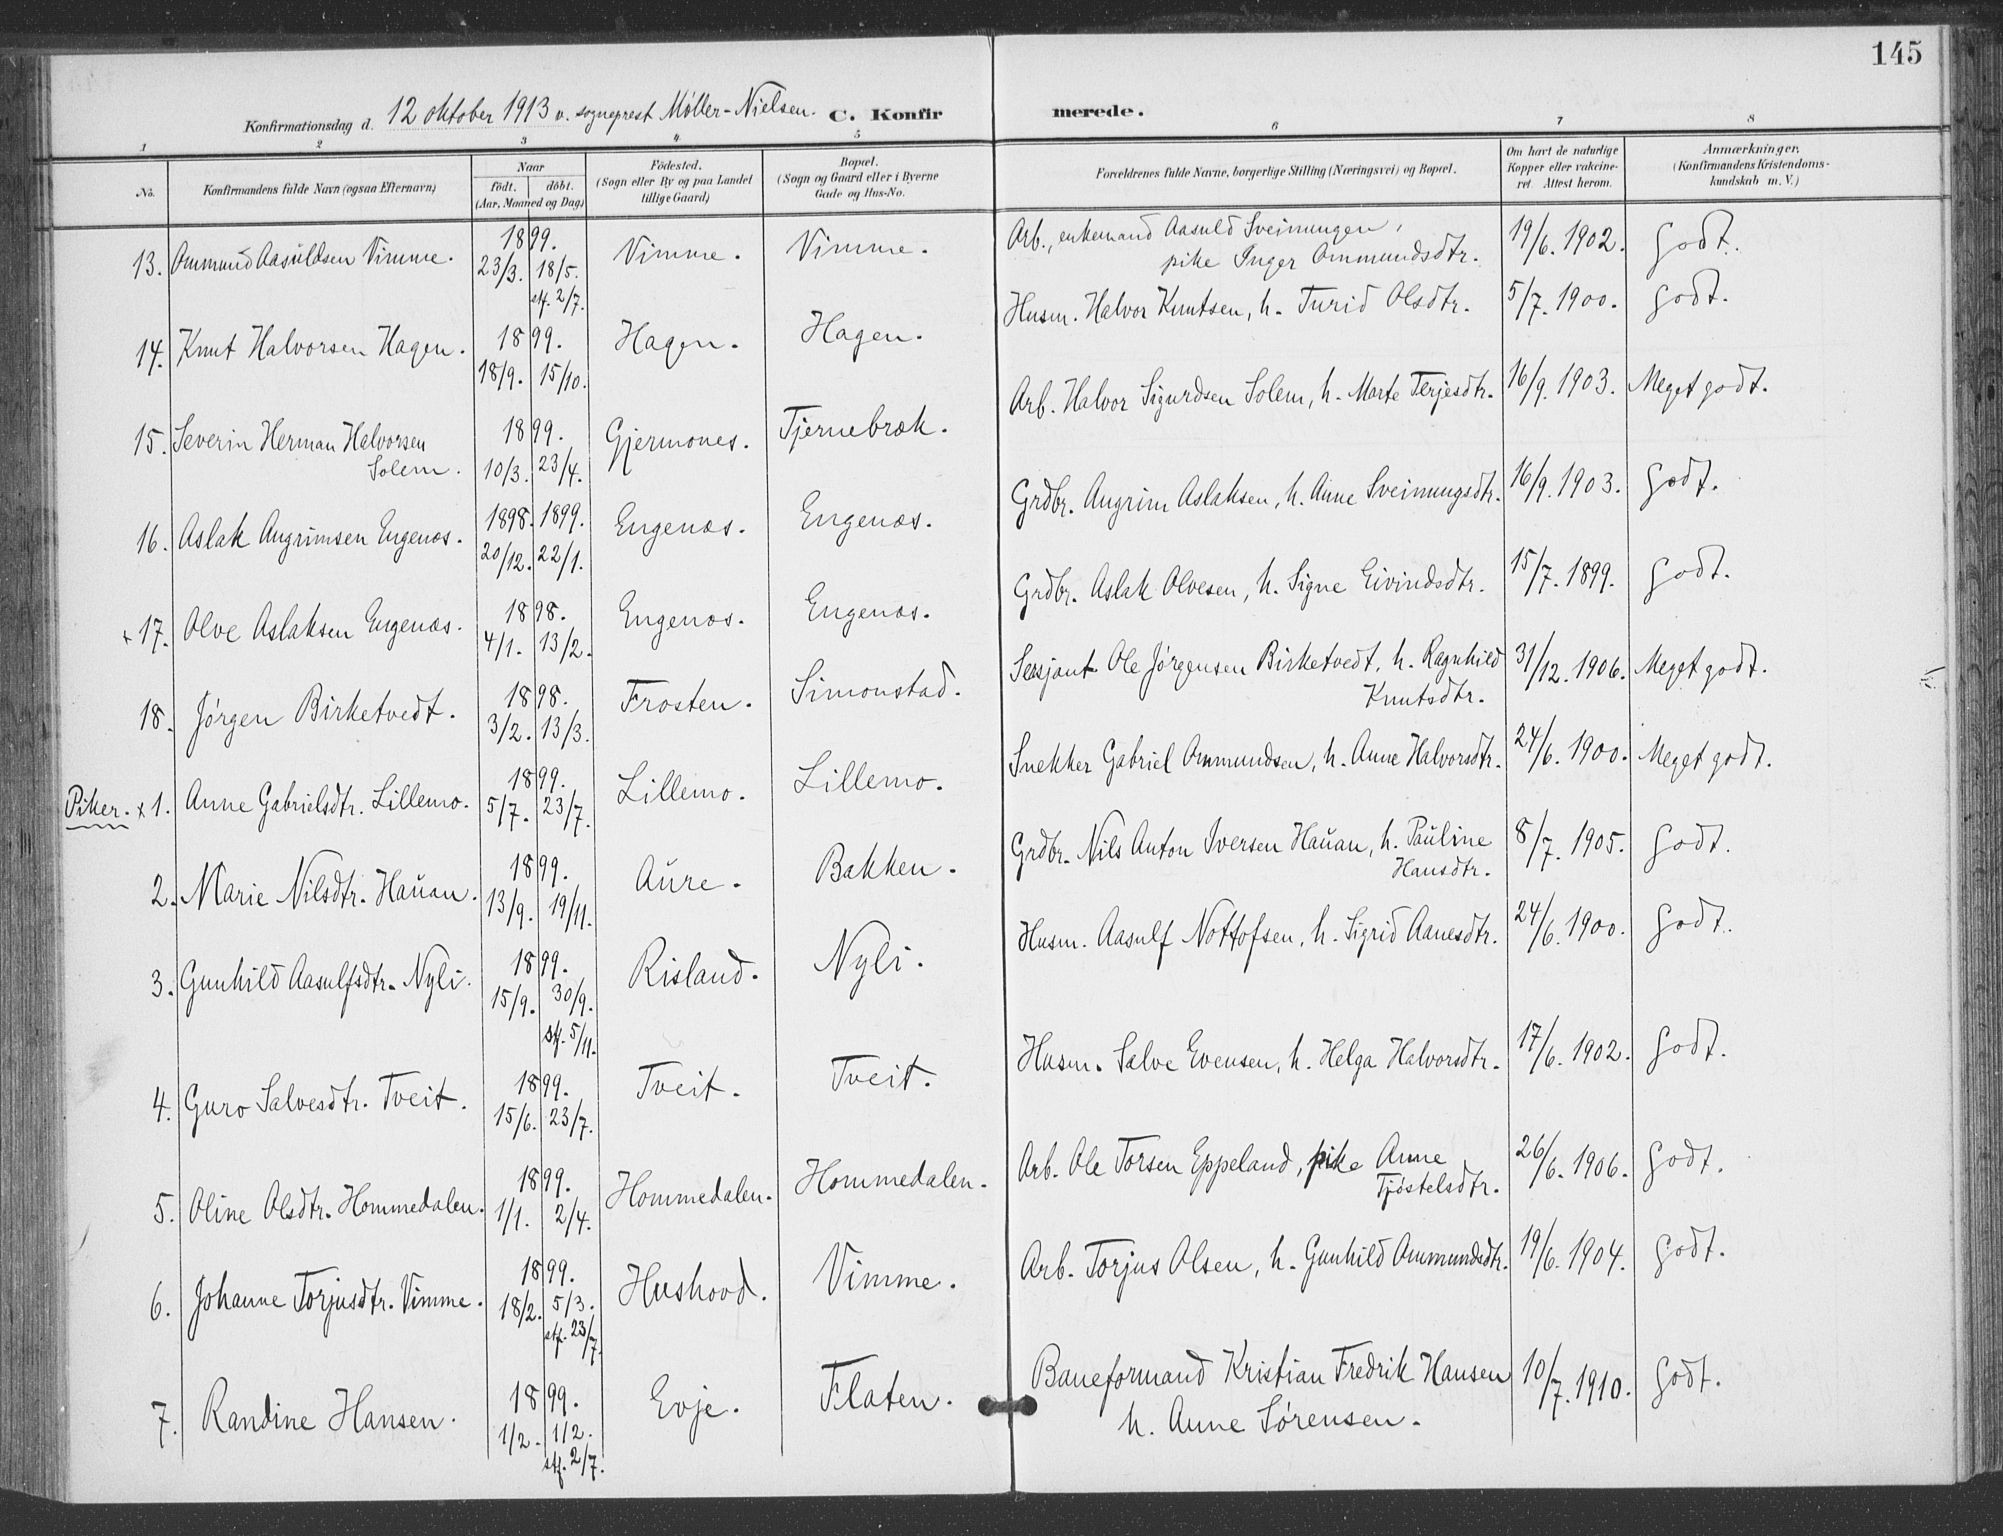 145
Konfirmationsdag d. 12 oktober 1913 v. sogneprest Møller-Nielsen. C. Konfirmerede.
1 2 3 4 5 6 7 8
No. Konfirmandens fulde Navn (ogsaa Efternavn) Naar født. døbt. (Aar, Maaned og Dag) Fødested. (Sogn eller By og paa Landet tillige Gaard) Bopæl. (Sogn og Gaard eller i Byerne Gade og Hus-No. Forældrenes fulde Navne, borgerlige Stilling (Næringsvei) og Bopæl. Om havt de naturlige Kopper eller vakcineret. Attest herom. Anmærkninger. (Konfirmandens Kristendomskundskab m. V.)
13. Ommund Aasuldsen Vimme. 1899. 23/3. 18/5. stf. 2/7. Vimme. Vimme. Arb., enkemand Aasuld Sveinungen, pike Inger Ommundsdtr. 19/6. 1902. Godt.
14. Knut Halvorsen Hagen. 1899. 18/9. 15/10. Hagen. Hagen. Husm. Halvor Knutsen, h. Turid Olsdtr. 5/7. 1900. Godt.
15. Severin Herman Halvorsen Solem. 1899. 10/3. 23/4. Gjermones. Tjernebræk. Arb. Halvor Sigurdsen Solem, h. Marte Terjesdtr. 16/9. 1903. Meget godt.
16. Aslak Angrimsen Engenæs. 1898. 1899. 20/12. 22/1. Engenæs. Engenæs. Grdbr. Angrim Aslaksen, h. Anne Sveinungsdtr. 16/9. 1903. Godt.
x 17. Olve Aslaksen Engenæs. 1898. 4/1. 13/2. Engenæs. Engenæs. Grdbr. Aslak Olvesen, h. Signe Eivindsdtr. 15/7. 1899. Godt.
18. Jørgen Birketvedt. 1898. 3/2. 13/3. Frosten. Simonstad. Sersjant Ole Jørgensen Birketvedt, h. Ragnhild Knutsdtr. 31/12. 1906. Meget godt.
Piker. x 1. Anne Gabrielsdtr. Lillemo. 1899. 5/7. 23/7. Lillemo. Lillemo. Snekker Gabriel Ommundsen, h. Anne Halvorsdtr. 24/6. 1900. Meget godt.
2. Marie Nilsdtr. Hauan. 1899. 13/9. 19/11. Aure. Bakken. Grdbr. Nils Anton Iversen Hauan, h. Pauline Hansdtr. 8/7. 1905. Godt.
3. Gunhild Aasulfsdtr. Nyli. 1899. 15/9. 30/9. stf. 5/11. Risland. Nyli. Husm. Aasulf Nottofsen, h. Sigrid Aanesdtr. 24/6. 1900. Godt.
4. Guro Salvesdtr. Tveit. 1899. 15/6. 23/7. Tveit. Tveit. Husm. Salve Evensen, h. Helga Halvorsdtr. 17/6. 1902. Godt.
5. Oline Olsdtr. Hommedalen. 1899. 1/1. 2/4. Hommedalen. Hommedalen. Arb. Ole Torsen Eppeland, pike Anne Tjøstelsdtr. 26/6. 1906. Godt.
6. Johanne Torjusdtr. Vimme. 1899. 18/2. 5/3. stf. 23/7. Hushovd. Vimme. Arb. Torjus Olsen, h. Gunhild Ommundsdtr. 19/6. 1904. Godt.
7. Randine Hansen. 1899. 1/2. 1/2. stf. 2/7. Evje. Flaten. Baneformand Kristian Fredrik Hansen h. Anne Sørensen. 10/7. 1910. Godt.